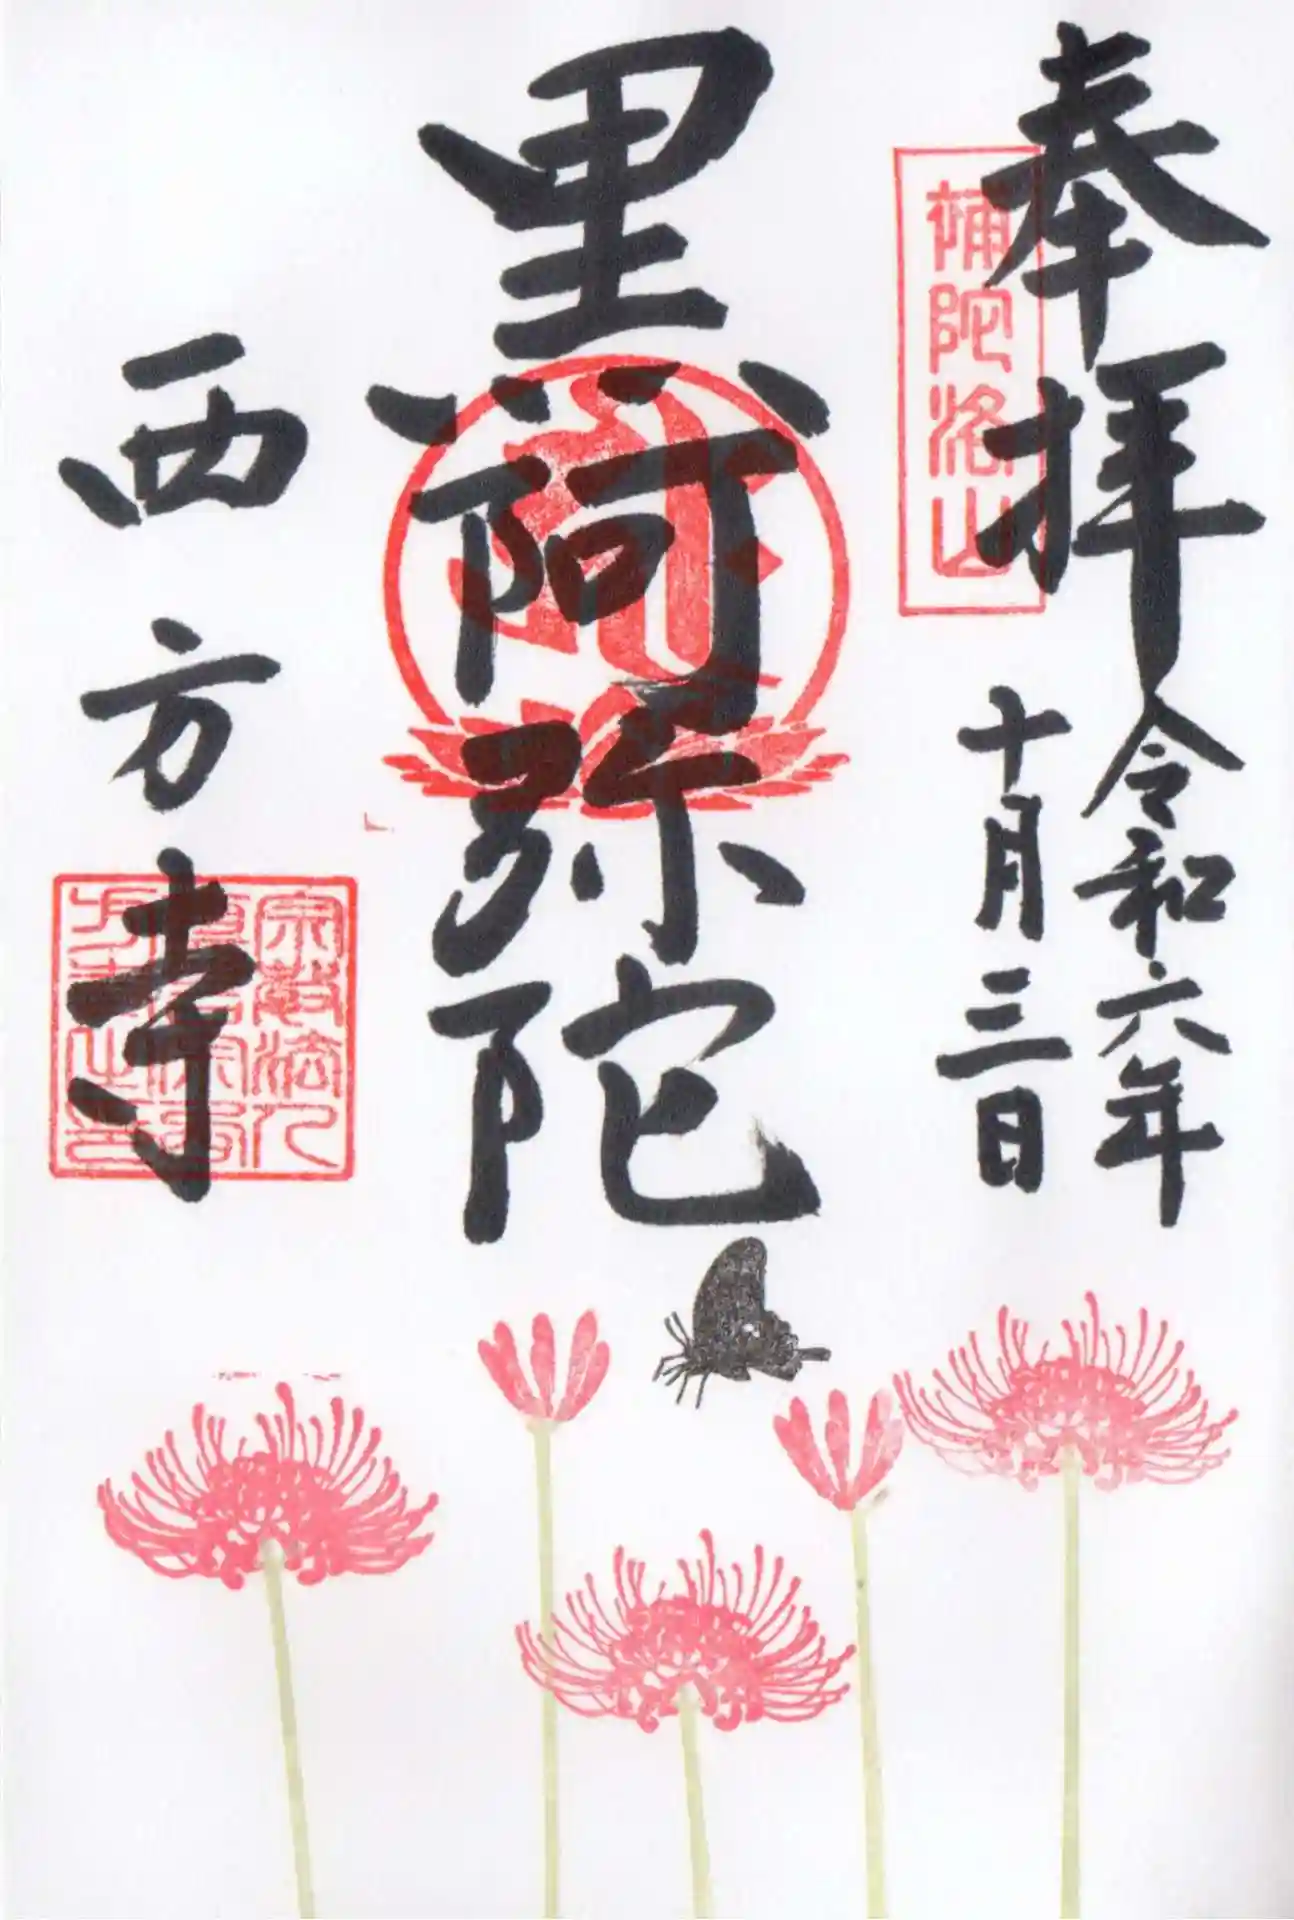 奉拝
補陀洛山
令和六年
十月三日
黒阿弥陀
西方寺